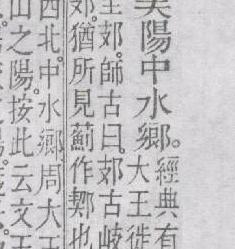 美陽中水鄉。經典有
大王徙
郊。師古曰。郊古岐
郊。猶所見薊作
西北。中水鄉。周大王
山之陽。按此云文王